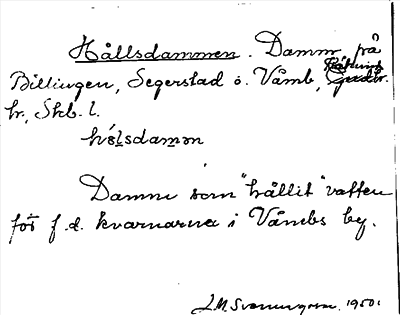 Hållsdammen. Damm på
Billingen, Segerstad o. Våmb,
hr, Skb. l.
hó̜lsdamən
Damm som "hållit" vatten
för f.d. kvarnarna i Våmbs by.
J.M. Svenungson. 1950.